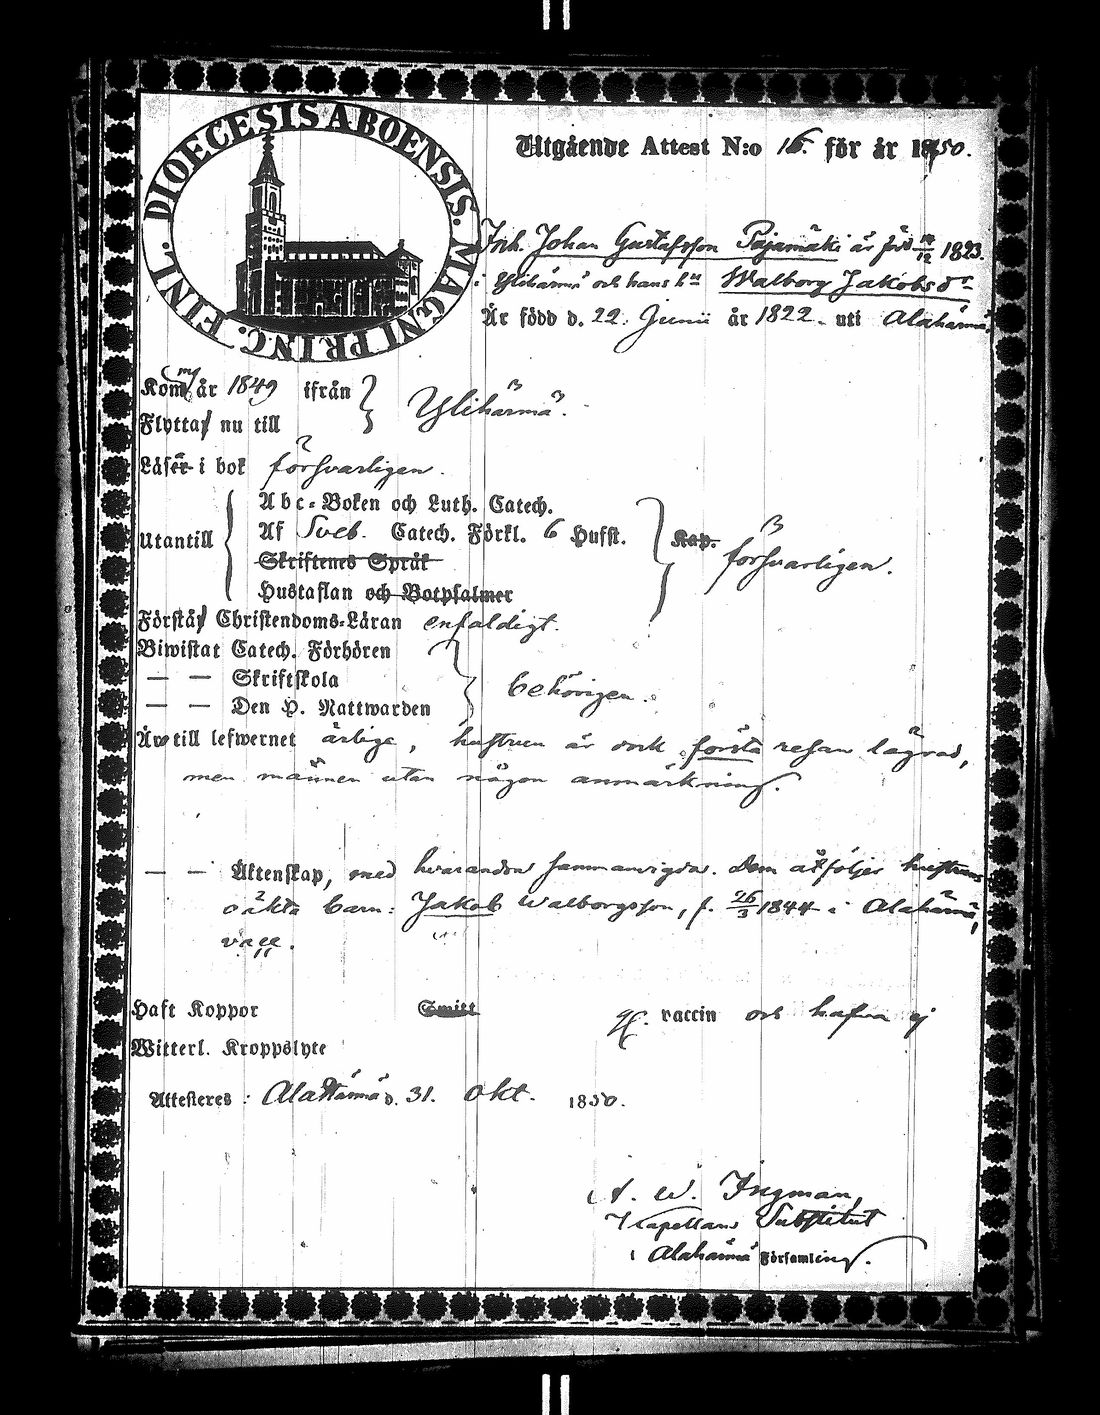 DIOECESIS ABOENSIS. MAGNI PRINC. FINL.
Utgående Attest N:o 16. för år 1850.
Inh. Johan Gustafsson Pajamäki är född 1823.
i Ylihärmä och hans hu Walborg Jakobsdr
Är född d. 22. Junii år 1822. uti Alahärmä.
Kom år 1849 ifrån
Flytta nu till
Ylihärmä.
Läser i bok försvarligen.
Abc-Boken och Luth. Catech.
Utantill Af Sveb. Catech. Förkl. 6 Hufst. Kap. försvarligen.
Skriftenes Språk
Hustaflan och Botpsalmer
Förstå Christendoms-Läran enfaldigt.
Biwistat Catech. Förhören
— — Skriftskola behörigen.
— — Den H. Nattwarden
Är till lefwernet ärlige, hustrun är dock första resan lägrad,
men mannen utan någon anmärkning.
— — Äktenskap, med hvarandra sammanvigda. Dem åtföljer hustruns
oäkta barn: Jakob Walborgsson, f. 26/3 1844 i Alahärmä,
vacc.
Haft Koppor Smitt vaccin och hafva ej
Witterl. Kroppslyte
Attesteres: Alahärmä d. 31. Okt. 1850.
A. W. Ingman,
Kapellans Substitut
i Alahärmä Församling.